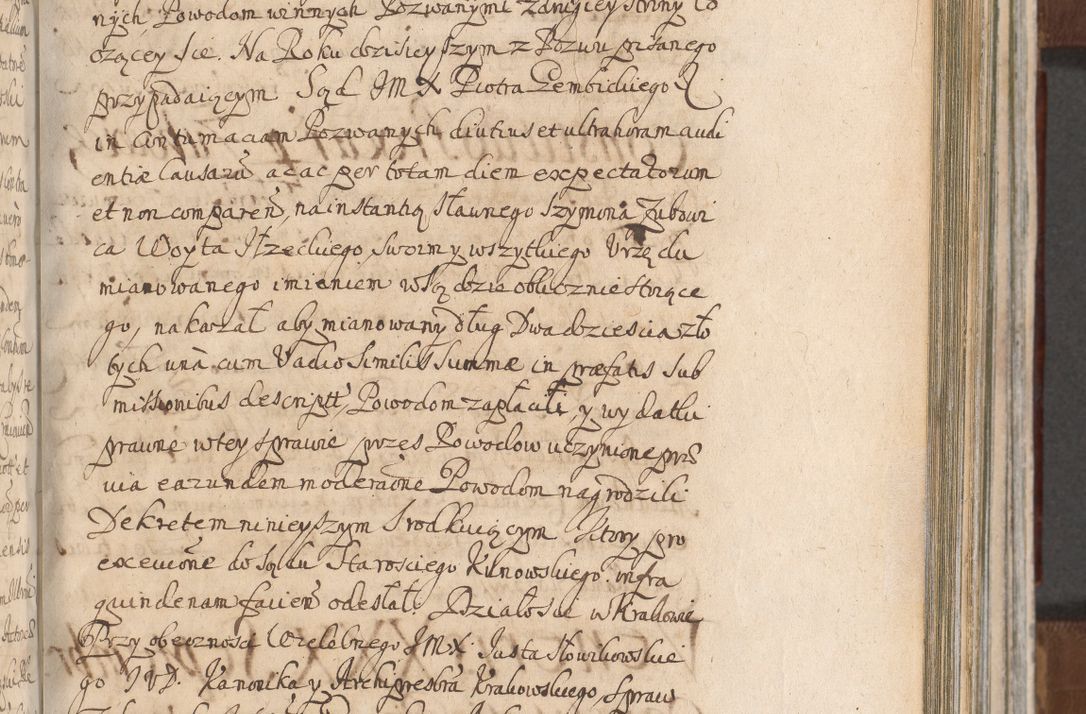 nych Powodom winnych Pozwanymi
ozącey sie. Na Roku dzisieyszym z Pozwu pisanego
przypadaiącym Sąd JMX Piotra Gembickiego
in contumaciam Pozwanych diutius et ultra horam audi
entiæ Causarū, ac ac per totam diem expectatorum
et non comparen̄, na instantią sławnego Szymona Zubowi
ca Woyta Iłzeckiego, swoim y wszytkiego Urzędu
mianowanego imieniem w Sądzie oblicznie stoiące
go, nakazał aby mianowany dług Dwadziescia zło
tych unà cum Vadio similis summæ in præfatis sub
missionibus descriptt, Powodom zapłacili, y wydatki
prawne w tey sprawie przes Powodow uczynione præ
via earundem moderãone Powodom nagrodzili
Dekretem ninieyszym srodkuiącym. Ktory pro
executione do Sądu Starosciego infra
quindenam facien̄ odesłał. Działo sie w Krakowie
Przy obecznosci Wielebnego JMX. Justa Słowikowskie
go JVD. Kanonika y Archipresbra Krakowskiego, spraw